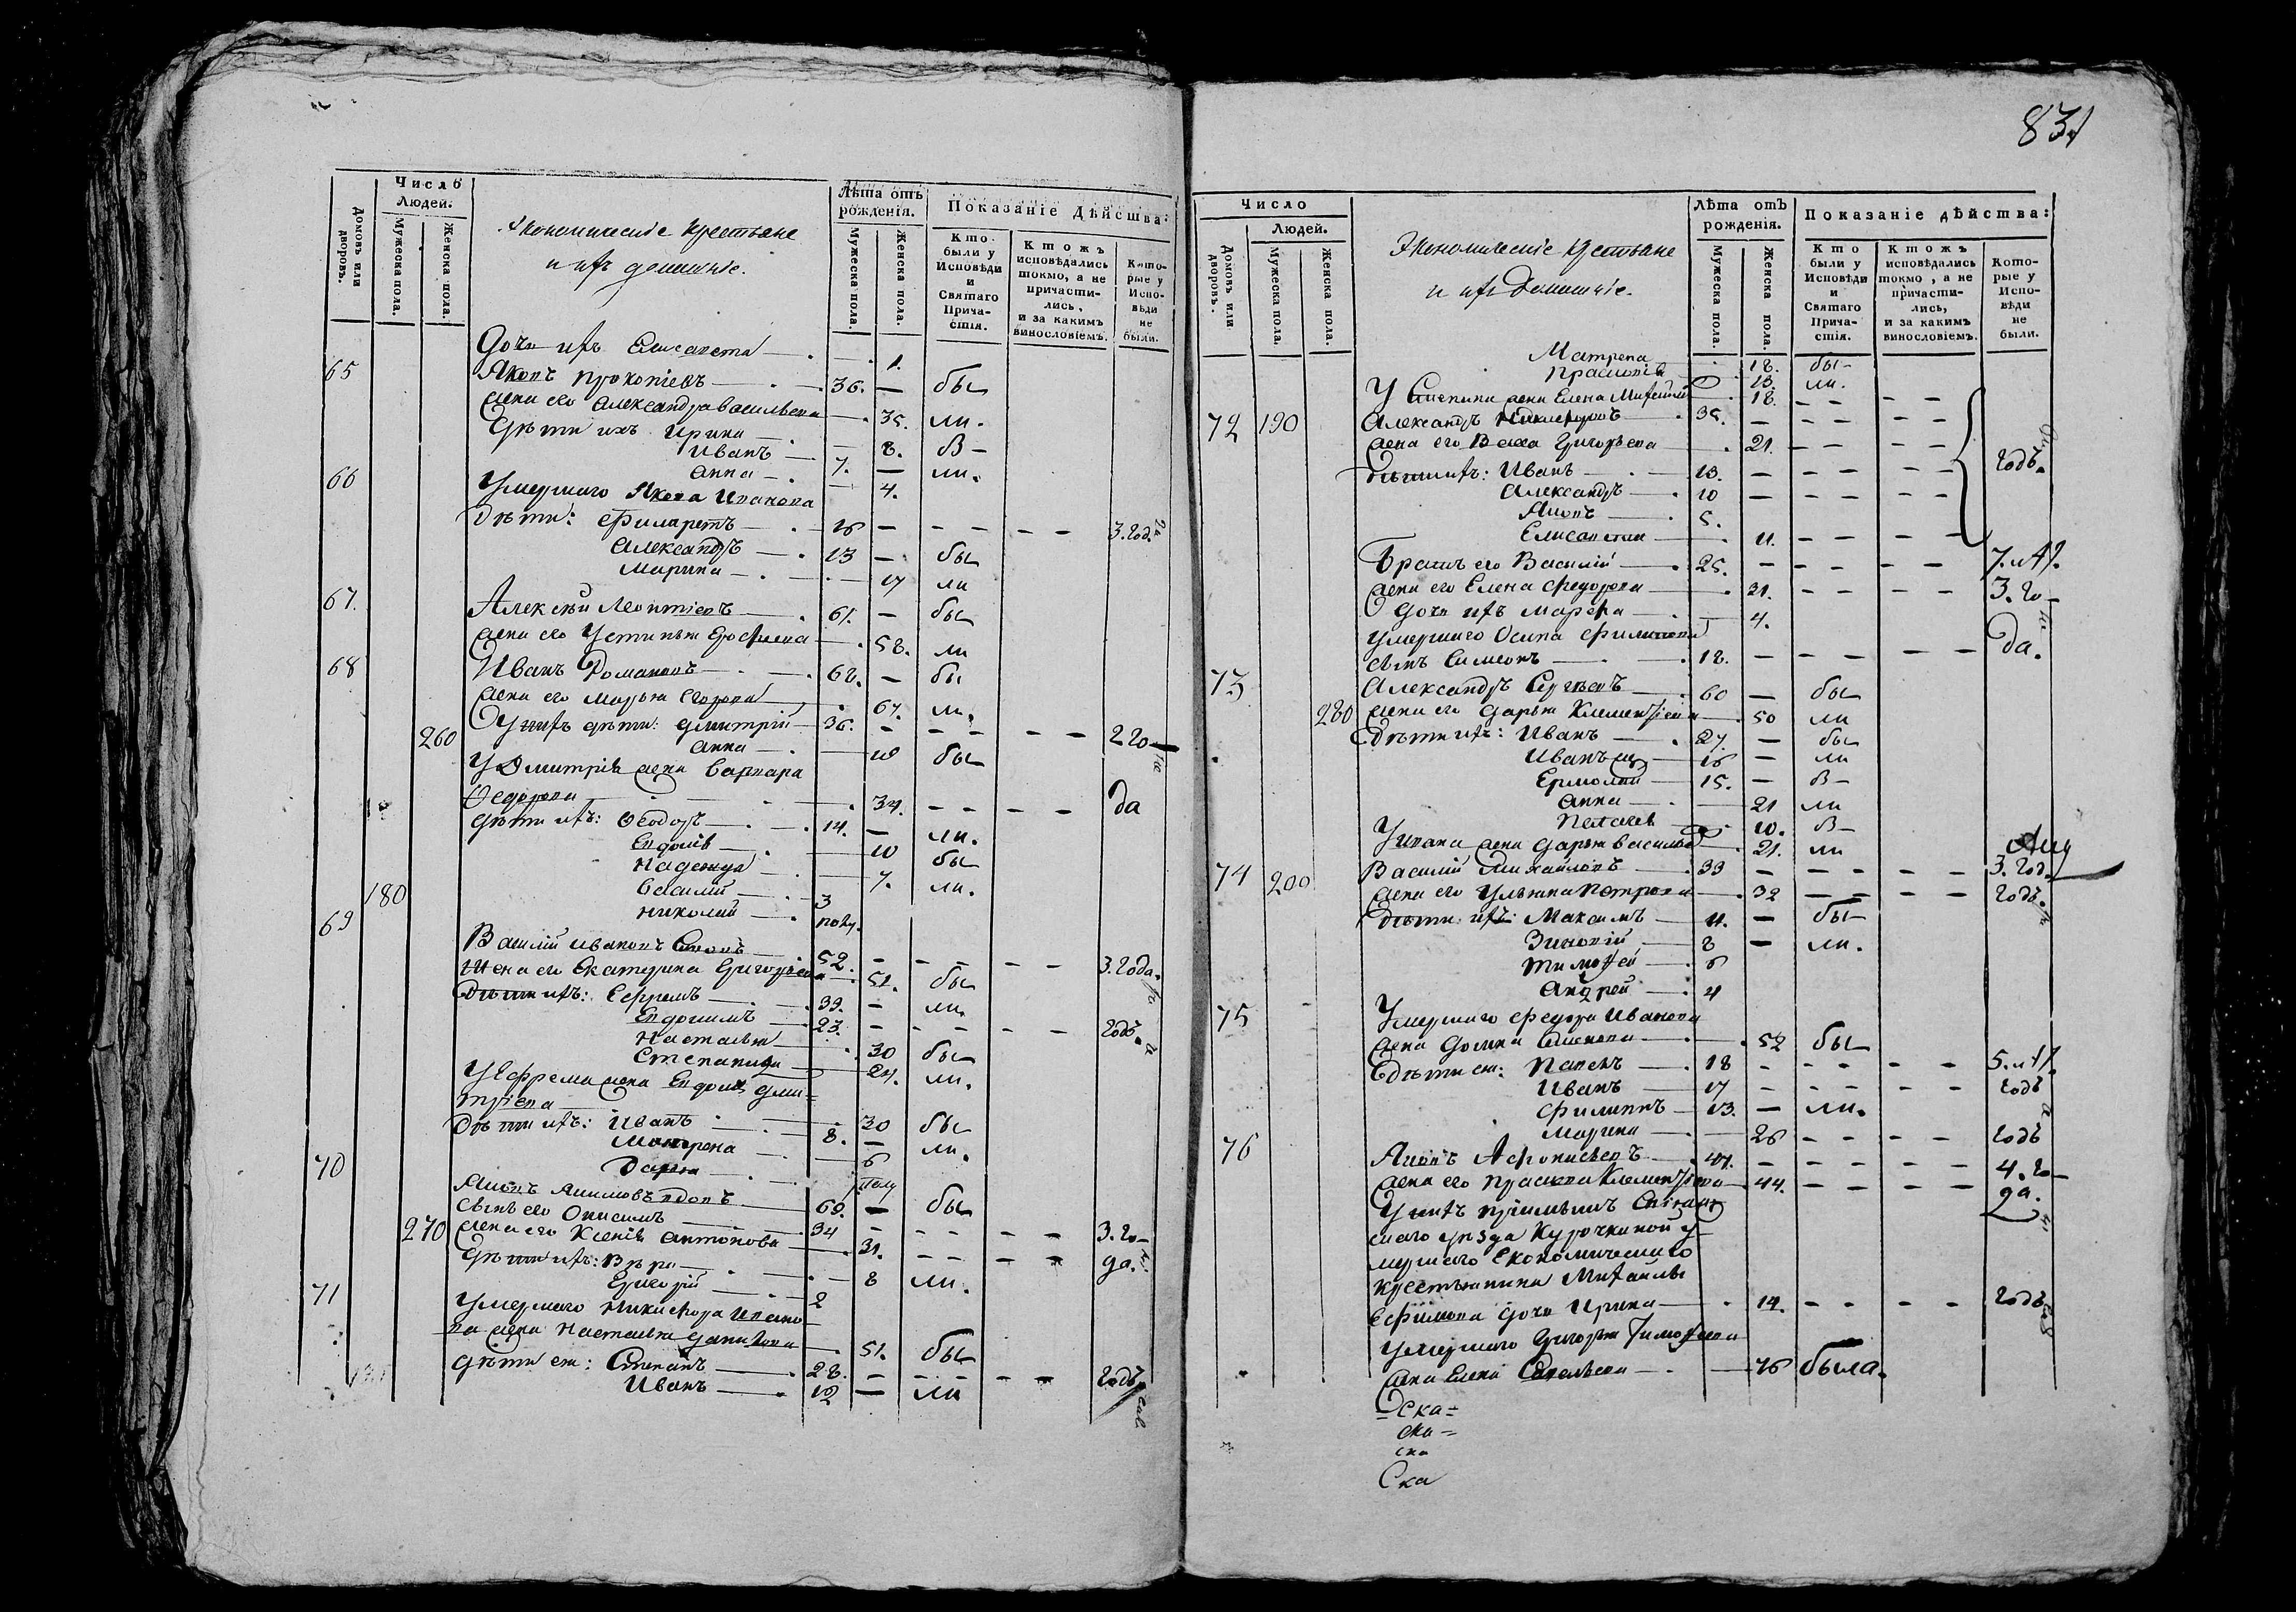 831
Число
Людей.
Домовъ или дворовъ.
Мужеска пола.
Женска пола.
Экономическіе крестьяне
и ихъ домашніе.
Лѣта отъ
рожденія.
Мужеска пола.
Женска пола.
Показаніе дѣйства:
Кто были у Исповѣди и Святаго Причастія.
Ктожъ исповѣдались токмо, а не причастились, и за какимъ винословіемъ.
Которые у Исповѣди не были.
Дочь ихъ Елисавета 1.
65 Яковъ Прокопіевъ 36. — бы
жена его Александра Васильева 35. ли.
Дѣти ихъ Ирина 8. В
Иванъ 7. — ли.
Анна 4.
66 Умершаго Якова Иванова
Дѣти: Филаретъ 16 — 3. год.
Александръ 13 — бы
Марина 17 ли
67. Алексѣй Леонтіевъ 61. — бы
жена его Устинья Ерофеева 58. ли
68 Иванъ Романовъ 68. — бы
жена его Марья Егорова 67. ли.
У нихъ дѣти: Димитрій 36. — 2 го
260 Анна 10 бы
У Димитрія жена Варвара
Ѳедорова 34. да
Дѣти ихъ: Ѳеодоръ 14. — ли.
Евдокія 10 бы
Надежда 7. ли.
Василій 3
180 Николай полу.
69 Василій Ивановъ 52. — 3. года.
Жена его Екатерина Григорьева 51. бы
Дѣти ихъ: Ефремъ 33. — ли.
Евдокимъ 23. — годъ.
Наталья 30 бы
Степанида 24. ли.
У Ефрема жена Евдокія Дми-
тріева 30 бы
Дѣти ихъ: Иванъ 8. — ли.
Матрена 6
Дарья полу
70 вдовъ 60. — бы
сынъ его Онисимъ 34 — 3. го
270 жена его Ксенія Антонова 31. да.
Дѣти ихъ: Вѣра 8 ли.
Григорій 2
71 Умершаго Никифора Ивано-
ва жена Наталья Данилова 51. бы
Дѣти ея: Степанъ 28. — годъ
Иванъ 12 — ли
Число
Людей.
Домовъ или дворовъ.
Мужеска пола.
Женска пола.
Экономическіе крестьяне
и ихъ домашніе.
Лѣта отъ
рожденія.
Мужеска пола.
Женска пола.
Показаніе дѣйства:
Кто были у Исповѣди и Святаго Причастія.
Ктожъ исповѣдались токмо, а не причастились, и за какимъ винословіемъ.
Которые у Исповѣди не были.
Матрена 18. бы
13. ли.
У Степана жена Елена 18.
72 190 Александръ Никифоровъ 35. —
жена его Васса Григорьева 21.
Дѣти ихъ: Иванъ 13. — годъ.
Александръ 10 —
5.
Елисавета 11.
Братъ его Василій 25. — 7. лѣ.
жена его Елена Федорова 21. 3. го
Дочь ихъ Марфа 4.
Умершаго Осипа Филиппова
сынъ Симеонъ 18. — да.
73 Александръ Сергѣевъ 60 — бы
280 жена его Дарья Клементіева 50 ли
Дѣти ихъ: Иванъ 27. — бы
Иванъ 16 — ли
Ермолай 15. — В
Анна 21 ли
Пелагея 10. В
У Ивана жена Дарья Васильева 21. ли
74 200 Василій Михайловъ 33 — 3. год.
жена его Ульяна Петрова 32 годъ.
Дѣти ихъ: Максимъ 11. — бы
Зиновій 8 — ли.
Тимоѳей 6
Андрей 4
75 Умершаго Федора Иванова
жена Домна 52 бы
Дѣти ея: Павелъ 18 5. лѣ.
Иванъ 17 годъ
Филиппъ 13. — ли.
Марина 26 годъ
76 47. — 4. го
жена его Прасковья Клементіева 44. да.
умершаго Экономическаго
крестьянина Михайлы
Ефимова дочь Ирина 14. годъ
Умершаго Григорья Тимоѳеева
жена Елена Савельева 76 была.
Ска